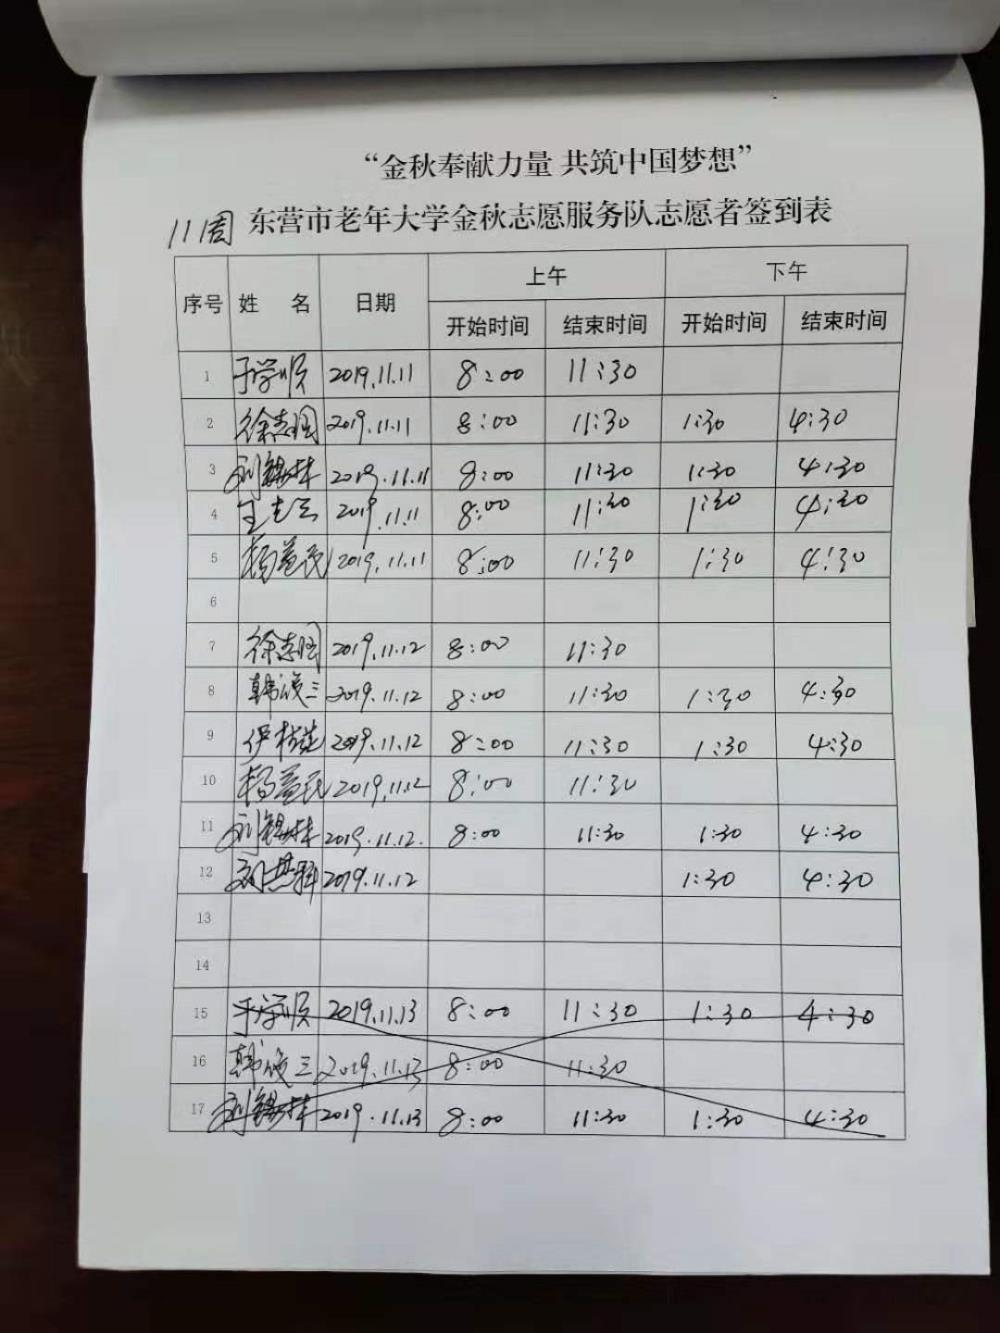 “金秋奉献力量 共筑中国梦想”
111周 东营市老年大学金秋志愿服务队志愿者签到表
序号 姓 名 日期 上午 下午
开始时间 结束时间 开始时间 结束时间
1 于学顺 2019.11.11 8:00 11:30
2 徐志国 2019.11.11 8:00 11:30 1:30 4:30
3 刘锡林 2019.11.11 8:00 11:30 1:30 4:30
4 2019.11.11 8:00 11:30 1:30 4:30
5 杨益民 2019.11.11 8:00 11:30 1:30 4:30
6
7 徐志国 2019.11.12 8:00 11:30
8 韩俊三 2019.11.12 8:00 11:30 1:30 4:30
9 2019.11.12 8:00 11:30 1:30 4:30
10 杨益民 2019.11.12 8:00 11:30
11 刘锡林 2019.11.12. 8:00 11:30 1:30 4:30
12 2019.11.12 1:30 4:30
13
14
15 于学顺 2019.11.13 8:00 11:30 1:30 4:30
16 韩俊三 2019.11.13 8:00 11:30
17 刘锡林 2019.11.13 8:00 11:30 1:30 4:30